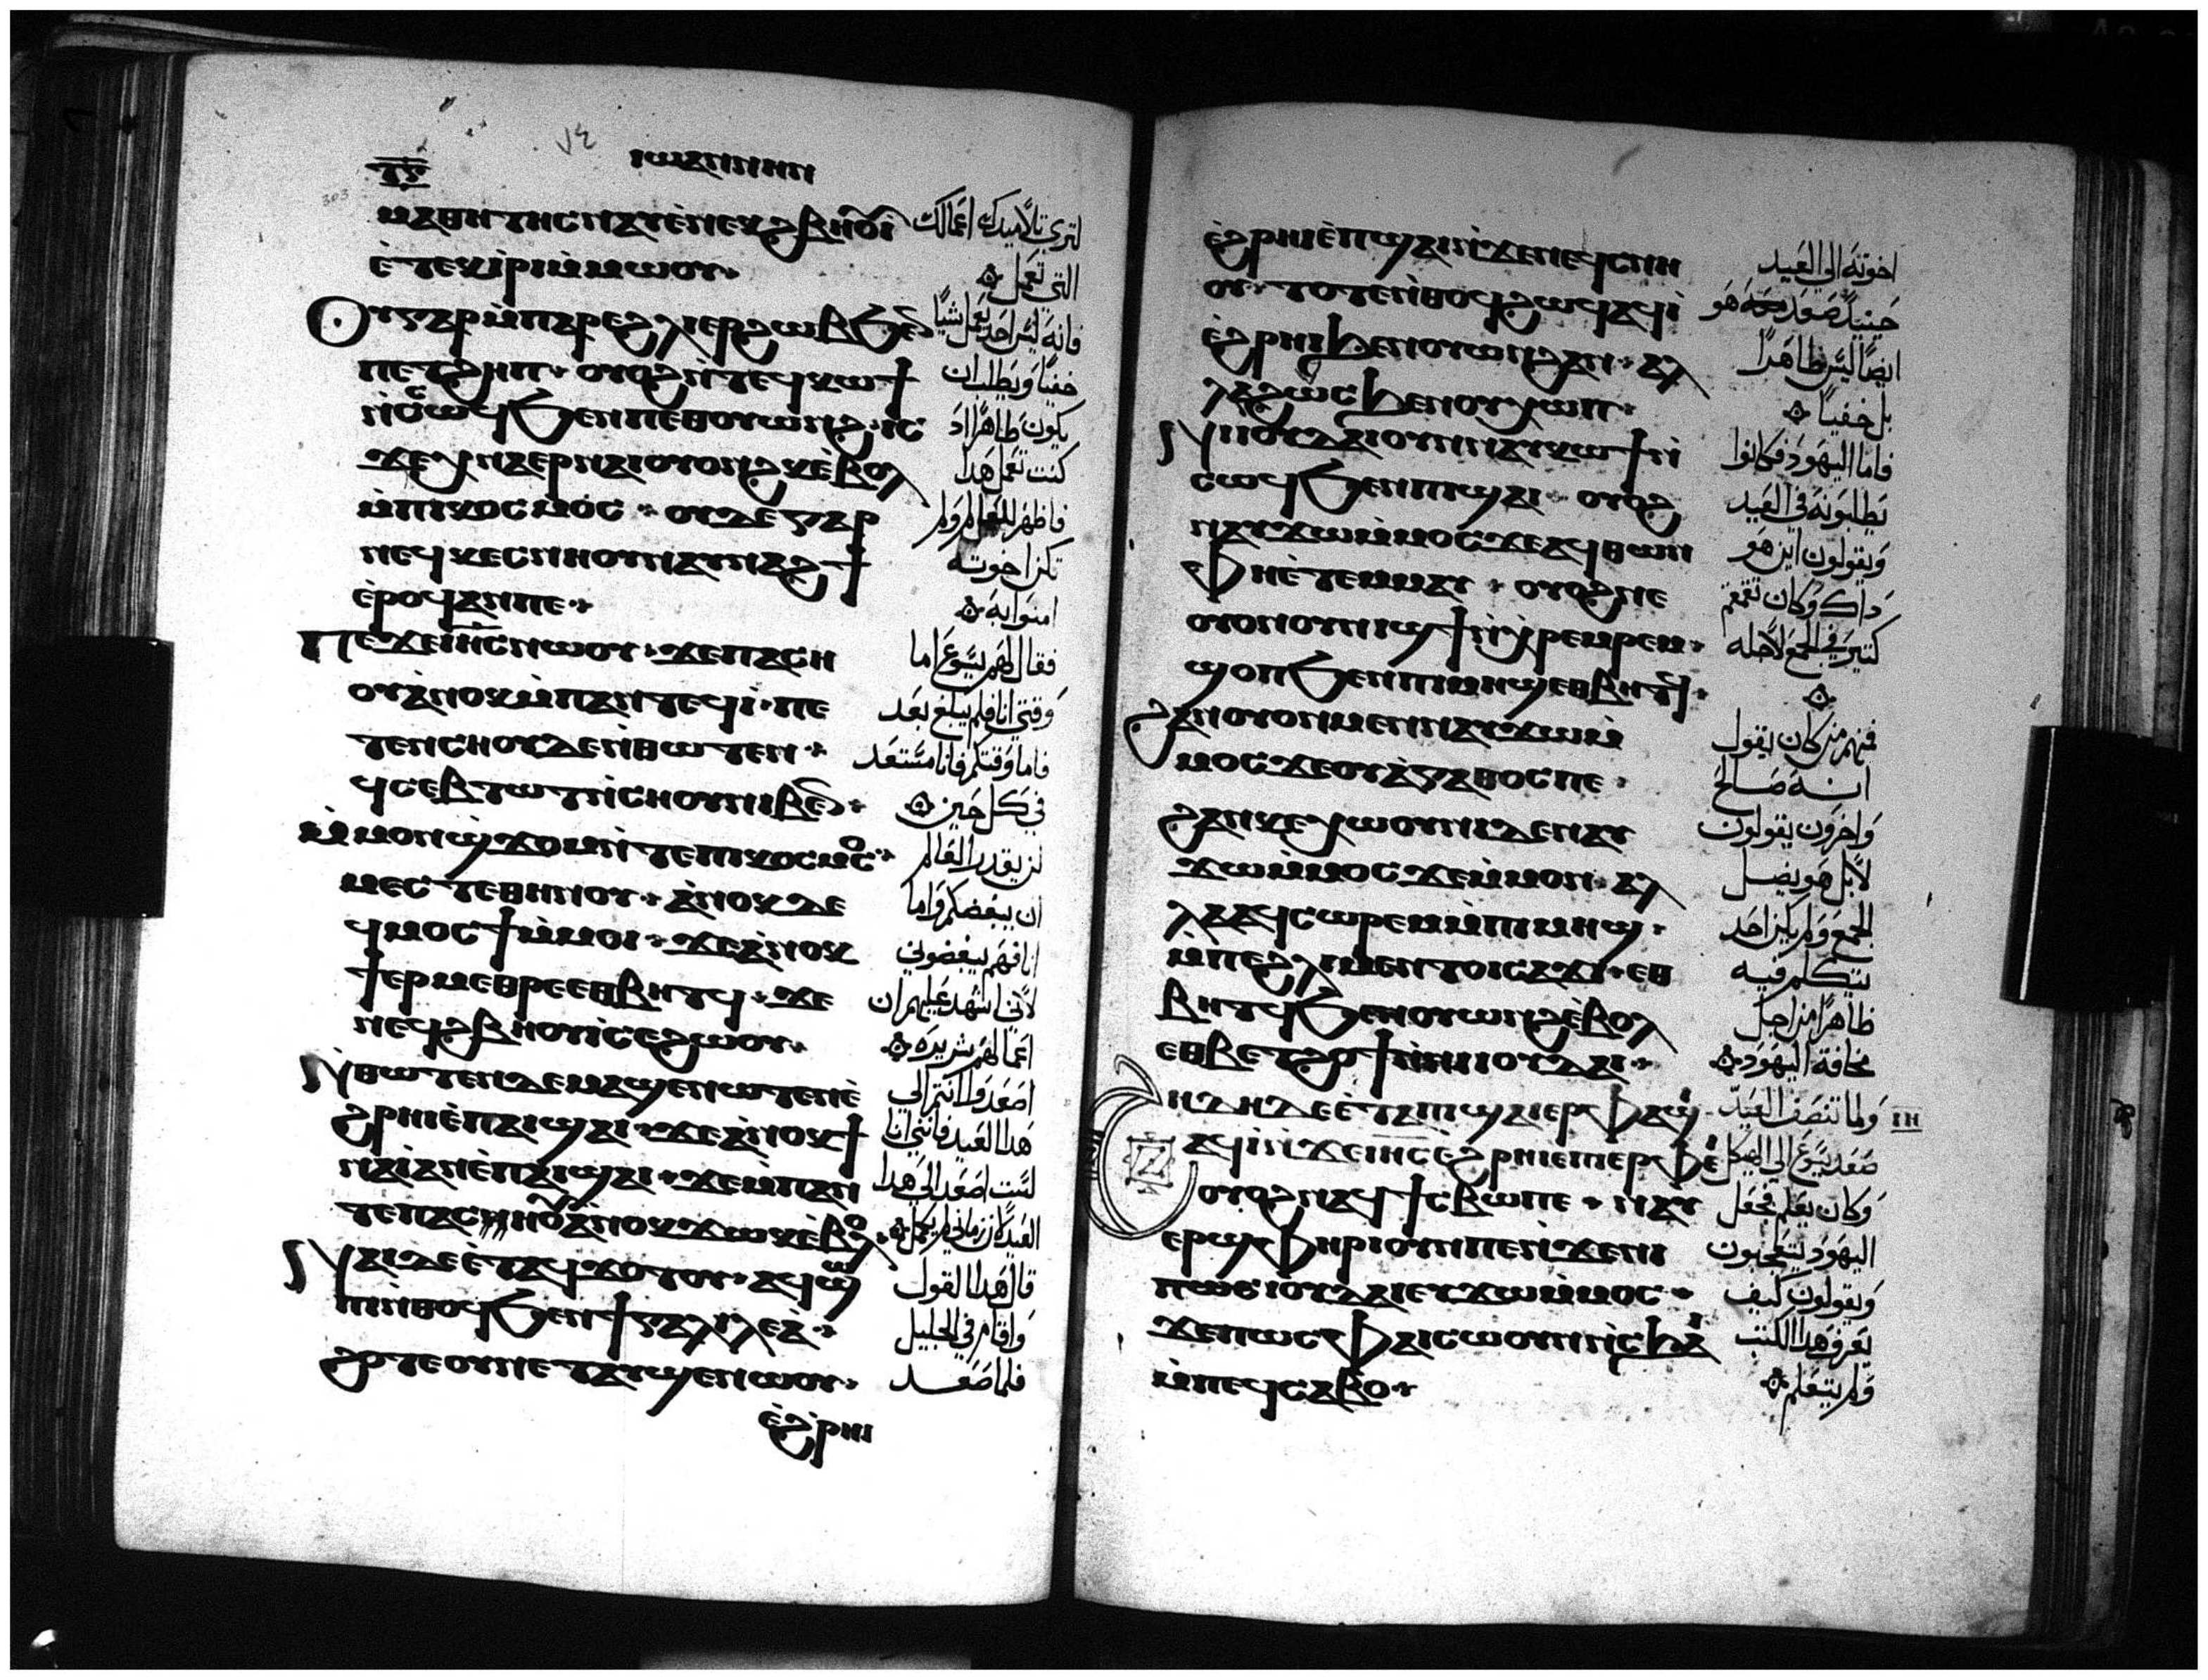 ⲓⲱⲁⲛⲛⲏⲛ
ⲙⲁⲑⲏⲧⲏⲥ ⲛⲁⲩ ⲉ̀ⲛⲉⲕϩⲃⲏⲟⲩⲓ̀
ⲉ̀ⲧⲉⲕⲓ̀ⲣⲓ ⲙ̀ⲙⲱⲟⲩ
ⲟⲩ ⲅⲁⲣ ⲙ̀ⲡⲁⲣⲉ ϩⲗⲓ ⲉⲣ ϩⲱⲃ ϧⲉⲛ
ⲡⲉⲧϩⲏⲡ ⲟⲩⲟϩ ⲛ̀ⲧⲉϥⲕⲱϯ
ⲛ̀ⲥⲱϥ ϧⲉⲛ ⲡⲉⲑⲟⲩⲱⲛϩ ⲓⲥ
ϫⲉ ⲭⲛⲁⲉⲣ ⲛⲁⲓ ⲟⲩⲟⲛϩⲕ ⲉ̀ⲃⲟⲗ
ⲙ̀ⲡⲓⲕⲟⲥⲙⲟⲥ ⲟⲩⲇⲉ ⲅⲁⲣ
ⲛⲉϥⲕⲉⲥⲛⲏⲟⲩ ⲛⲁⲩⲛⲁϩϯ
ⲉ̀ⲣⲟϥ ⲁⲛ ⲡⲉ
ⲡⲉϫⲉ ⲓⲏⲥ ⲛⲱⲟⲩ ϫⲉ ⲡⲁⲥⲏ
ⲟⲩ ⲁ̀ⲛⲟⲕ ⲙ̀ⲡⲁⲛⲧⲉϥⲓ̀ ⲡⲉ
ⲧⲉⲛⲥⲏⲟⲩ ⲇⲉ ⲛ̀ⲑⲱⲧⲉⲛ
ϥⲥⲉⲃⲧⲱⲧ ⲛ̀ⲥⲏⲟⲩ ⲛⲓⲃⲉⲛ
ⲙ̀ⲙⲟⲛ ϣ̀ϫⲟⲙ ⲛ̀ⲧⲉ ⲡⲓⲕⲟⲥⲙⲟⲥ
ⲙⲉⲥⲧⲉ ⲑⲏⲛⲟⲩ ⲁ̀ⲛⲟⲕ ⲇⲉ
ϥⲙⲟⲥϯ ⲙ̀ⲙⲟⲓ ϫⲉ ⲁ̀ⲛⲟⲕ
ϯⲉⲣⲙⲉⲑⲣⲉ ⲉⲑⲃⲏⲧϥ ϫⲉ
ⲛⲉϥϩⲃⲏⲟⲩⲓ̀ ⲥⲉϩⲱⲟⲩ
ⲛ̀ⲑⲱⲧⲉⲛ ⲇⲉ ⲙⲁϣⲉⲛⲱⲧⲉⲛ ⲉ̀
ϩⲣⲏⲓ ⲉ̀ⲡⲁⲓϣⲁⲓ ϫⲉ ⲁ̀ⲛⲟⲕ ϯ
ⲛⲁⲓ̀ ⲁⲛ ⲉ̀ⲡⲁⲓϣⲁⲓ ϫⲉ ⲙ̀ⲡⲁⲛ
ⲧⲉ ⲡⲁⲥⲏⲟⲩ ⲁ̀ⲛⲟⲕ ϫⲱⲕ ⲉ̀ⲃⲟⲗ
ⲛⲁⲓ ⲇⲉ ⲉ̀ⲧⲁϥϫⲟⲧⲟⲩ ⲁϥϣⲱ
ⲡⲓ ⲛ̀ⲑⲟϥ ϧⲉⲛ ϯⲅⲁⲗⲓⲗⲉⲁ̀
ϩⲟⲧⲉ ⲟⲩⲛ ⲉⲧⲁⲩϣⲉⲛⲱⲟⲩ
ⲉ̀ϩⲣⲏⲓ
لترى تلاميدك اعمالك
التي تعمل
فانه ليس احد يعمل شيا
خفيا ويطلب ان
يكون ظاهرا اد
كنت تعمل هدا
فاظهر للعالم ولم
تكن اخوته
امنوا به
فقال لهم يسوع اما
وقتي انا فلم يبلغ بعد
فاما وقتكم فانه مستعد
في كل حين
لن يقدر العالم
ان يبغضكم واما
انا فهم يبغضوني
لاني اشهد عليهم ان
اعمالهم شريره
اصعدوا انتم الى
هدا العيد فانني انا
لست اصعد الى هدا
العيد لان زماني لم يكمل
قال هدا القول
واقام في الجليل
فلما صعد
ⲉ̀ϩⲣⲏⲓ ⲉ̀ⲡϣⲁⲓ ⲛ̀ϫⲉ ⲛⲉϥⲥⲛⲏ
ⲟⲩ ⲧⲟⲧⲉ ⲛ̀ⲑⲟϥ ϩⲱϥ ⲁϥⲓ̀
ⲉ̀ϩⲣⲏⲓ ϧⲉⲛ ⲟⲩⲱⲛϩ ⲁⲛ ⲁⲗ
ⲗⲁ ϩⲱⲥ ϧⲉⲛ ⲟⲩⲭⲱⲡ
ⲛ̀ⲓⲟⲩⲇⲁⲓ ⲟⲩⲛ ⲛⲁⲩⲕⲱϯ ⲛ̀
ⲥⲱϥ ϧⲉⲛ ⲡϣⲁⲓ ⲟⲩⲟϩ
ⲛⲁⲩϫⲱ ⲙ̀ⲙⲟⲥ ϫⲉ ⲁϥⲑⲱⲛ
ⲫⲏ ⲉ̀ⲧⲉⲙⲙⲁⲩ ⲟⲩⲟϩ ⲛⲉ
ⲟⲩⲟⲛ ⲟⲩⲛⲓϣϯ ⲛ̀ⲭⲣⲉⲙⲣⲉⲙ
ϣⲟⲡ ϧⲉⲛ ⲡⲓⲙⲏϣ ⲉⲑⲃⲏⲧϥ
ϩⲁⲛⲟⲩⲟⲛ ⲙⲉⲛ ⲛⲁⲩϫⲱ ⲙ̀
ⲙⲟⲥ ϫⲉ ⲟⲩⲁ̀ⲅⲁⲑⲟⲥ ⲡⲉ
ϩⲁⲛⲕⲉⲭⲱⲟⲩⲛⲓ ⲇⲉ ⲛⲁⲩ
ϫⲱ ⲙ̀ⲙⲟⲥ ϫⲉ ⲙ̀ⲙⲟⲛ ⲁⲗ
ⲗⲁ ⲁϥⲥⲱⲣⲉⲙ ⲙ̀ⲡⲓⲙⲏϣ
ⲙ̀ⲡⲉ ϩⲗⲓ ⲙⲉⲛⲧⲟⲓ ⲥⲁϫⲓ ⲉⲑ
ⲃⲏⲧϥ ϧⲉⲛ ⲟⲩⲱⲛϩ ⲉ̀ⲃⲟⲗ
ⲉⲑⲃⲉ ⲧϩⲟϯ ⲛ̀ⲛⲓⲓⲟⲩⲇⲁⲓ
ϩⲏⲇⲏ ⲇⲉ ⲉ̀ⲧⲁ ⲡϣⲁⲓ ⲉⲣⲫⲁϣⲓ
ⲁϥⲓ̀ ⲛ̀ϫⲉ ⲓⲏⲥ ⲉ̀ϩⲣⲏⲓ ⲉⲡⲓⲉⲣⲫⲉⲓ
ⲟⲩⲟϩ ⲛⲁϥϯⲥⲃⲱ ⲡⲉ ⲛⲁⲩ
ⲉⲣϣⲫⲏⲣⲓ ⲟⲩⲛ ⲡⲉ ⲛ̀ϫⲉ ⲛⲓ
ⲓⲟⲩⲇⲁⲓ ⲉⲩϫⲱ ⲙ̀ⲙⲟⲥ
ϫⲉ ⲡⲱⲥ ⲫⲁⲓ ⲥⲱⲟⲩⲛ ⲛ̀ⲥϧⲁⲓ
ⲙ̀ⲡⲉϥⲥⲁⲃⲟ
اخوته الى العيد
حينيد صعد هو
ايضا ليس ظاهرا
بل خفيا
فاما اليهود فكانوا
يطلبونه في العيد
ويقولون اين هو
داك وكان تقمقم
كتير في الجمع لاجله
فمنهم من كان يقول
انه صالح
واخرون يقولون
لا بل هو يضل
الجمع ولم يكن احد
يتكلم فيه
ظاهرا من اجل
مخافة اليهود
ولما تنصف العيد ⲓⲏ
صعد يسوع الى الهيكل
وكان يعلم فجعل
اليهود يتعجبون
ويقولون كيف
يعرف هدا الكتب
ولم يتعلم